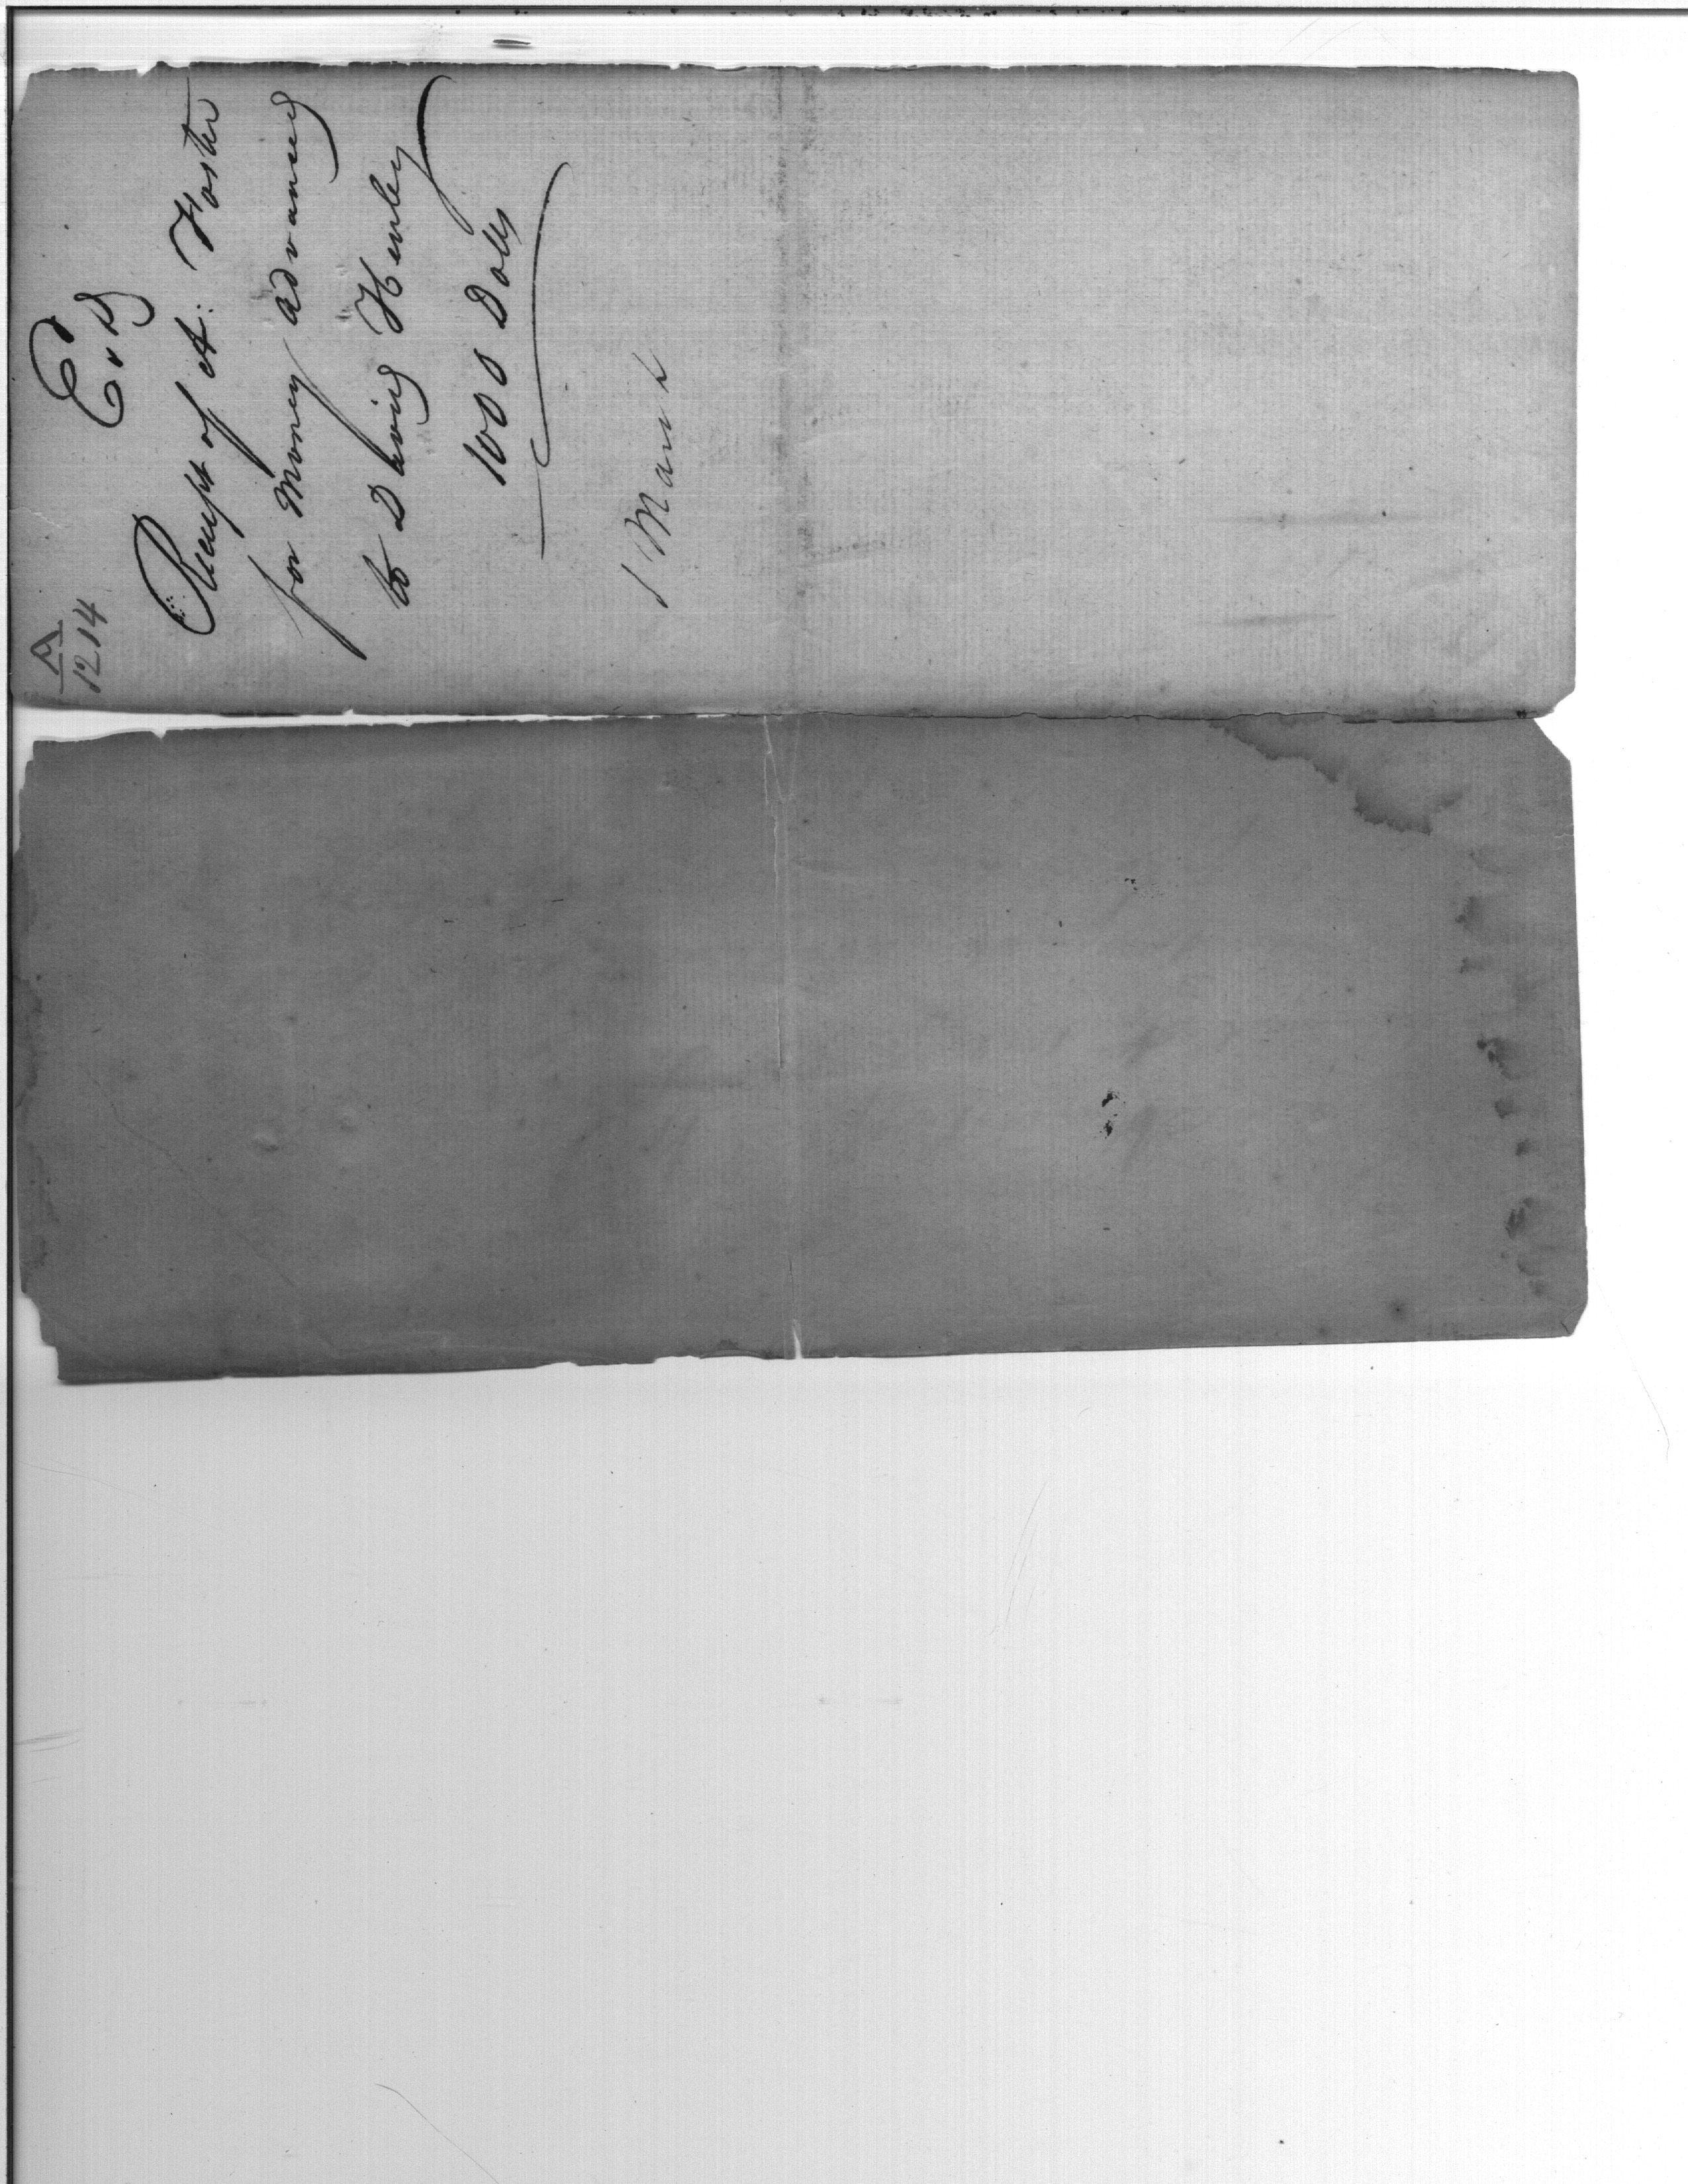 A
1214
Receipt of A: Foster
for Money advanced
to David Henley
1000 Dolls